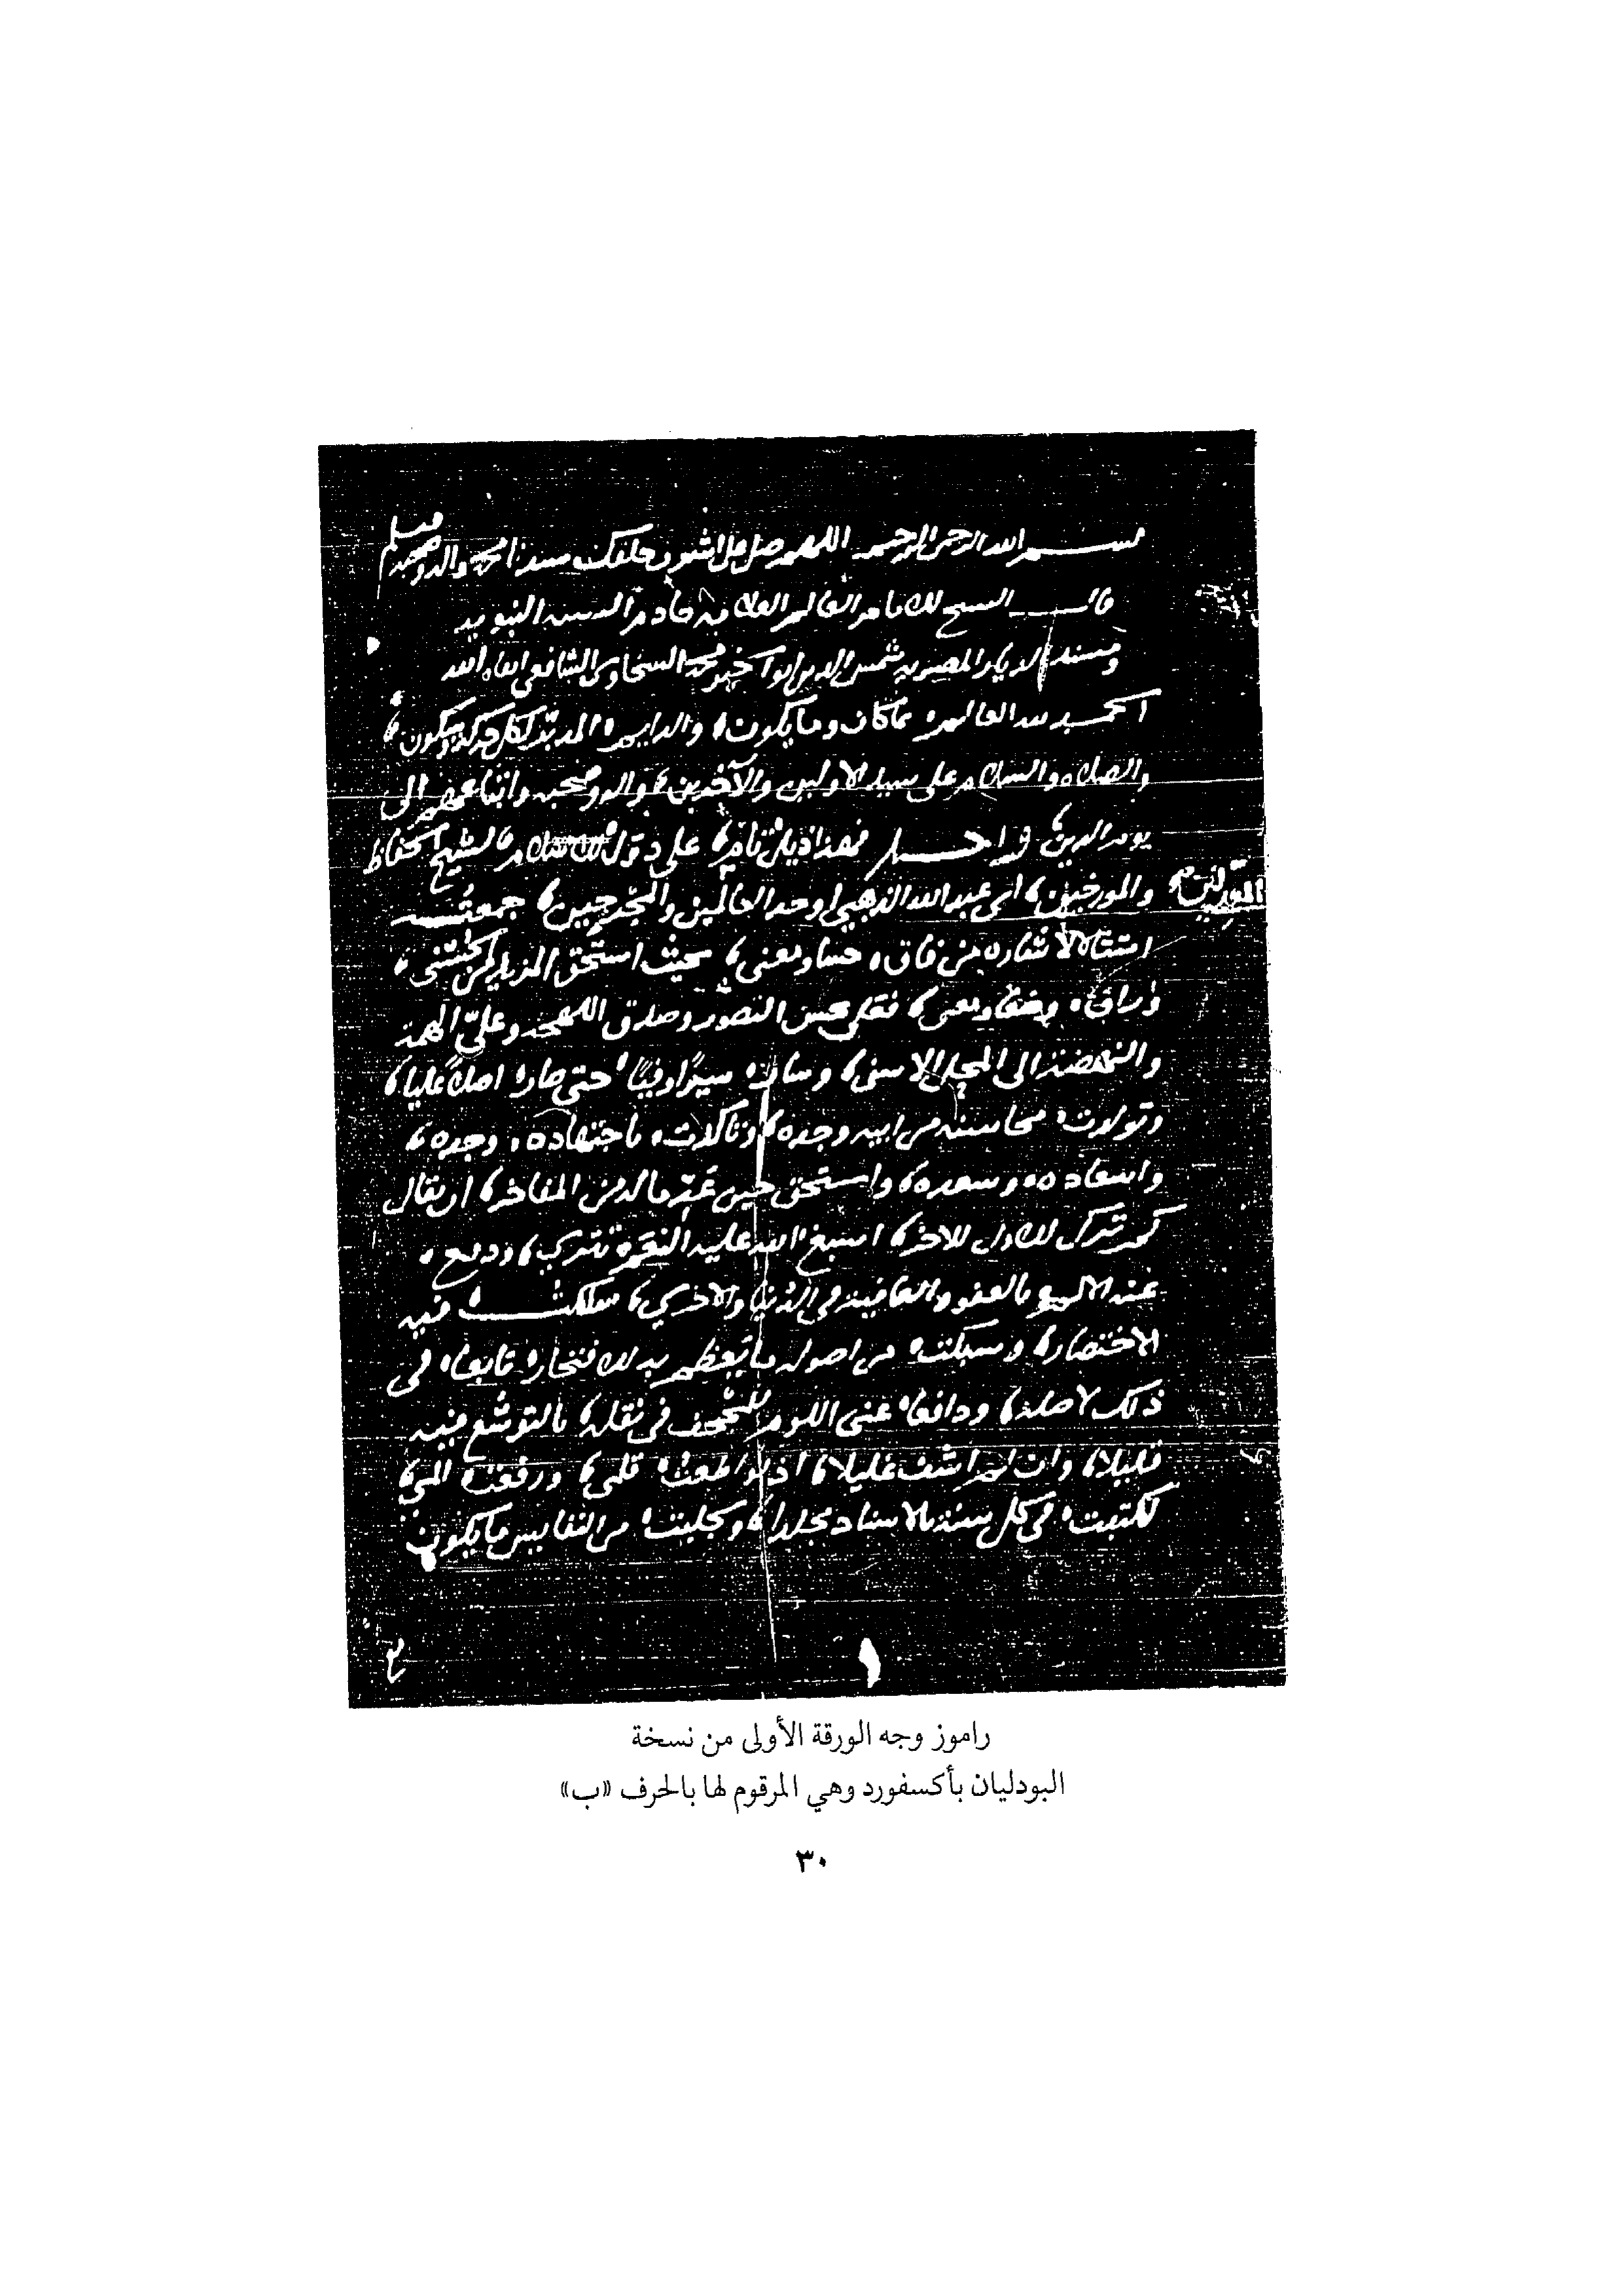 بسم الله الرحمن الرحيم اللهم صل على اشرف خلقك سيدنا محمد واله وصحبه وسلم
قال الشيخ الامام العالم العلامة خادم السنة النبوية
ومسند الديار المصرية شمس الدين ابو الخير محمد السخاوى الشافعى ابقاه الله
الحمد لله العالم بما كان وما يكون والدايم المدبر لكل حركة وسكون
والصلاة والسلام على سيد الاولين والآخرين واله وصحبه واتباعهم الى
يوم الدين فهذا ذيل تام على دول الاسلام لشيخ الحفاظ
والمورخين ابى عبد الله الذهبى اوحد العالمين والمجرحين جمعته
المعدلين
امتثالا لاشارة من فاق حسا ومعنى بحيث استحق المزيد من الحسنى
وراق فعلى بحسن التصور وصدق اللهجة وعلى الهمة
والنهضة الى المحل الاسنى وسار سيرا حتى صار اصلا عليا
وتولدت محاسنه من ابيه وجده وتاكدت باجتهاده وجده
واسعاده وسعده واستحق حين عد ماله من المفاخر ان يقال
كم ترك الاول للاخر اسبغ الله عليه النعم تترى ودفع
عنه بالعفو والعافية فى الدنيا والاخرى سلكت فيه
الاختصار وسبكت من اصوله ما يعظم به الافتخار تابعا فى
ذلك لاصله ودافعا عنى اللوم فى نقله بالتوسع فيه
قليلا وان لم اشف غليلا اذ لو اطعت قلمى ورفعت المى
لكتبت فى كل سنة بالاسناد مجلدا وجلبت من النفايس ما يكون
راموز وجه الورقة الأولى من نسخة
البودليان بأكسفورد وهي المرقوم لها بالحرف «ب»
٣٠